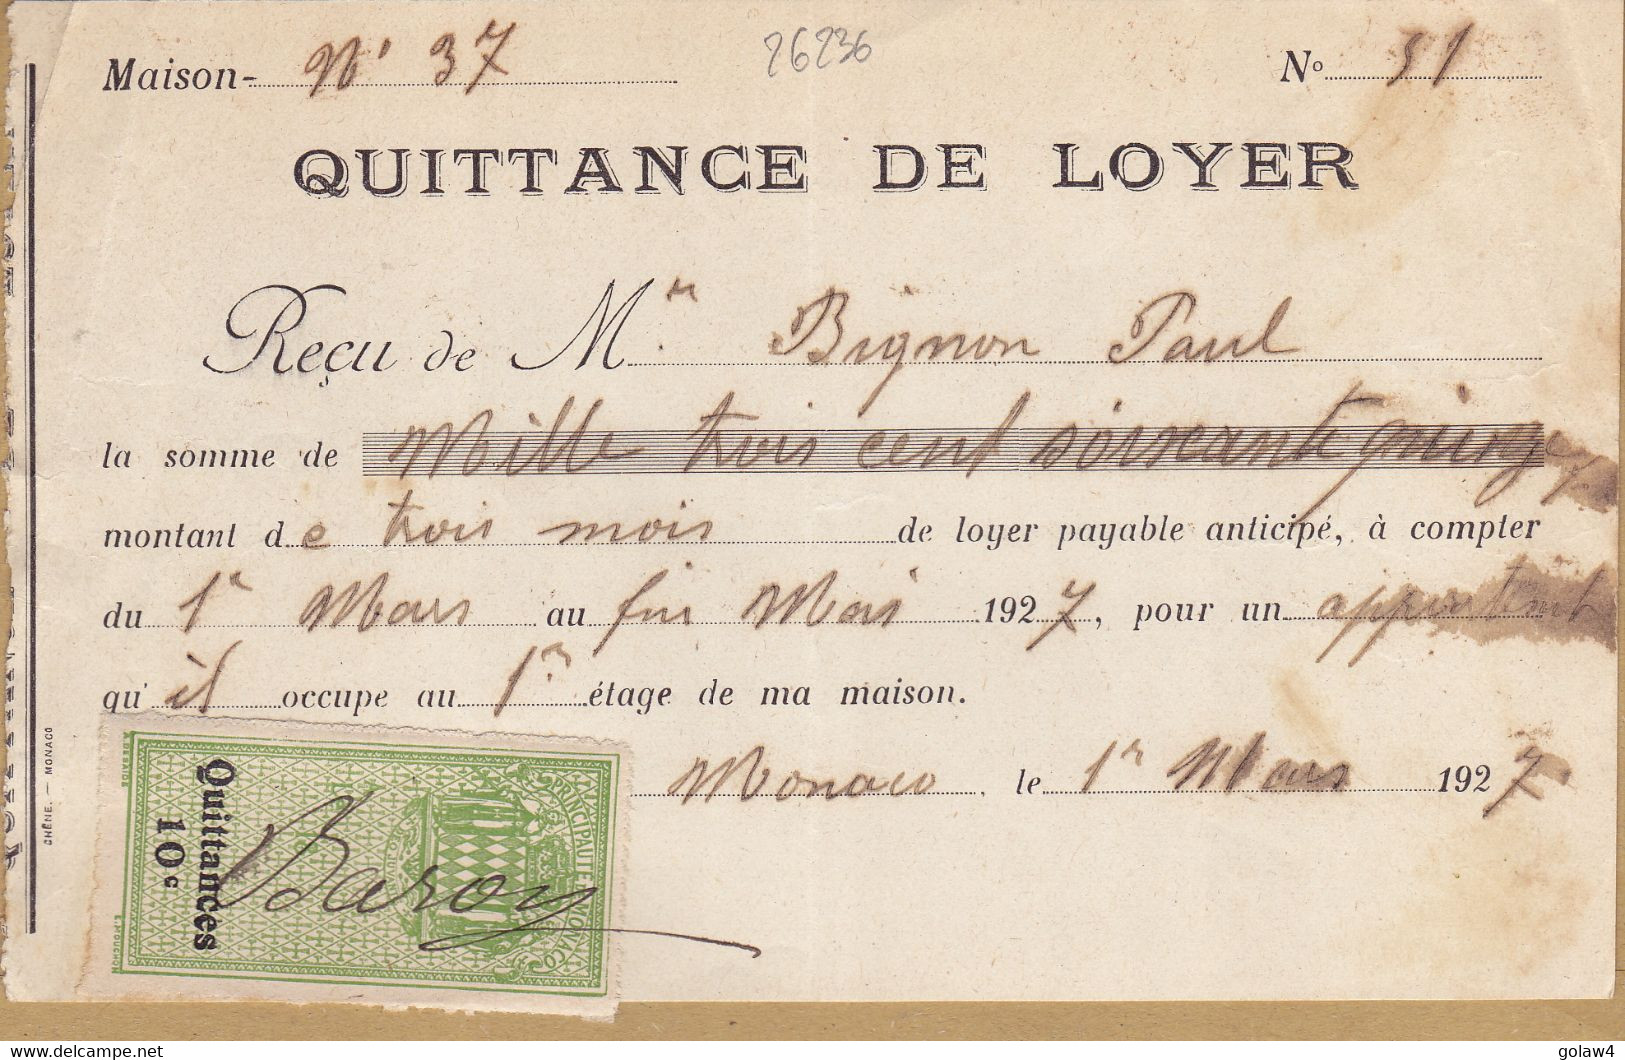 Maison- N° 37
26236
N° 51
QUITTANCE DE LOYER
Reçu de Mr. Bignon Paul
la somme de Mille trois cent soixante quinze
montant de trois mois de loyer payable anticipé, à compter
du 1er Mars au fin Mai 1927, pour un appartemt
qu'il occupe au 1er étage de ma maison.
Monaco, le 1er Mars 1927.
PRINCIPAUTÉ DE MONACO
Quittances
10c
CHÊNE. — MONACO
golaw4
www.delcampe.net